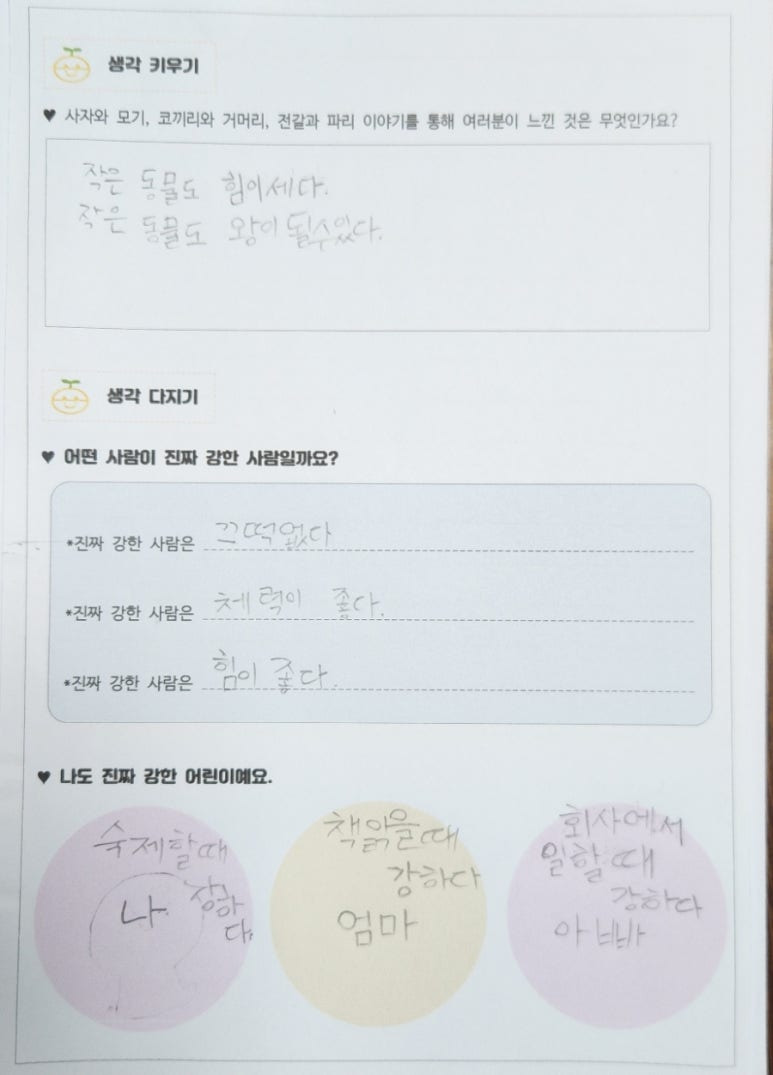 생각 키우기
♥ 사자와 모기, 코끼리와 거머리, 전갈과 파리 이야기를 통해 여러분이 느낀 것은 무엇인가요?
작은 동물도 힘이세다.
작은 동물도 왕이 될수있다.
생각 다지기
♥ 어떤 사람이 진짜 강한 사람일까요?
*진짜 강한 사람은 끄떡없다
*진짜 강한 사람은 체력이 좋다.
*진짜 강한 사람은 힘이 좋다.
♥ 나도 진짜 강한 어린이예요.
숙제할때
나 강하
다.
책읽을때
강하다
엄마
회사에서
일할 때
강하다
아빠